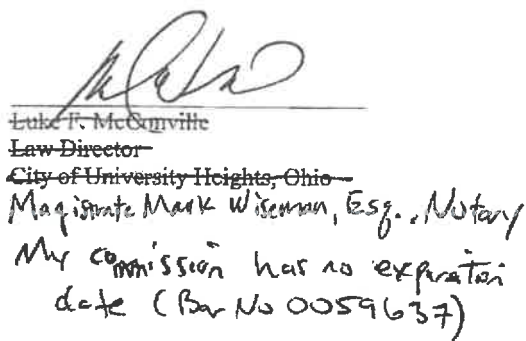 Luke F. McConville
Law Director
City of University Heights, Ohio
Magistrate Mark Wiseman, Esq., Notary
My commission has no expiration
date (Bar No 0059637)